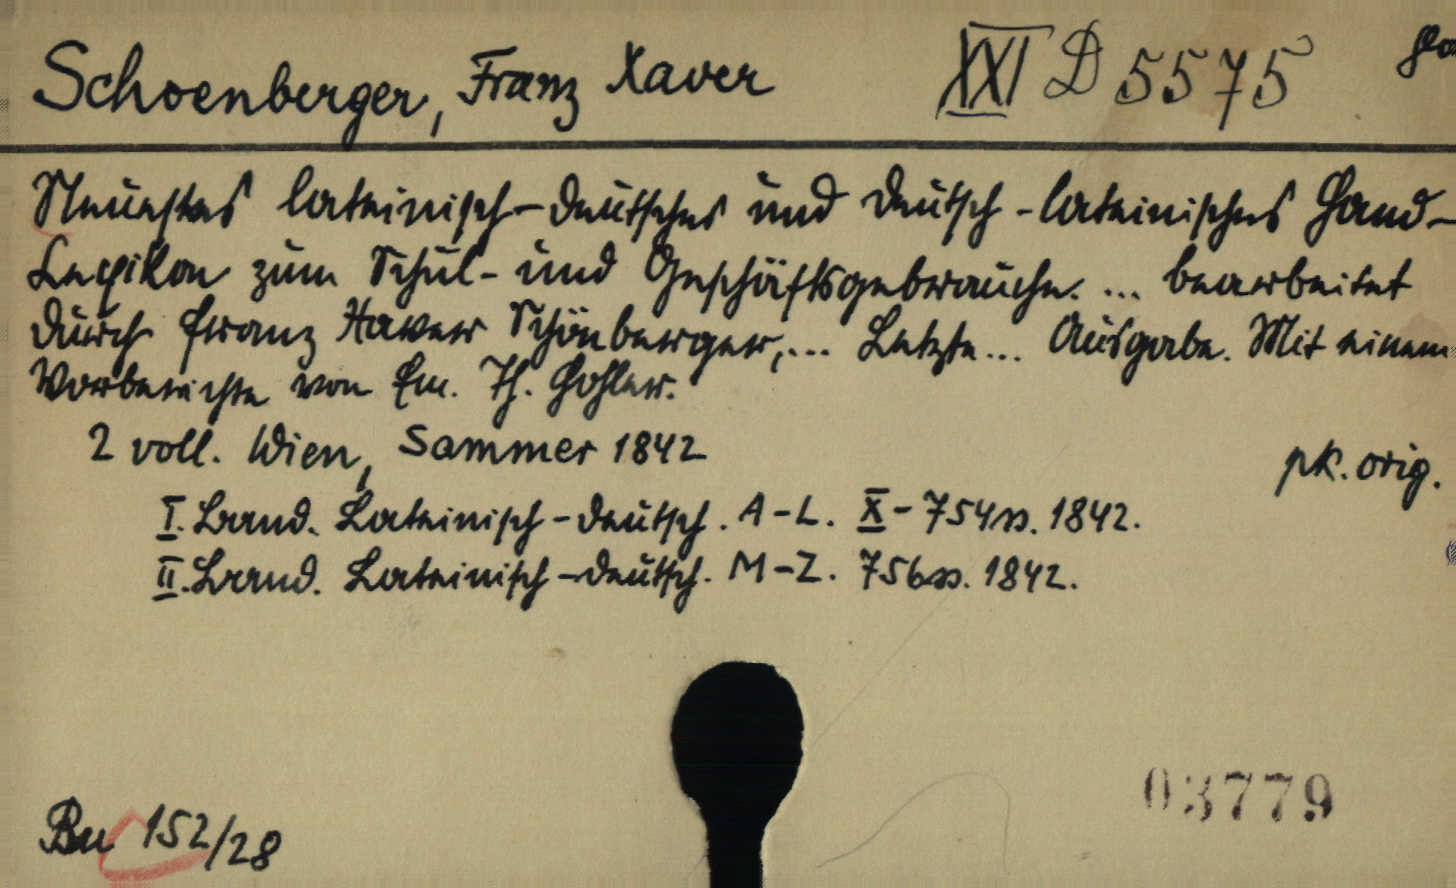 Schoenberger, Franz Xaver XXI D 5575
Neuestes lateinisch-deutsches und deutsch-lateinisches Hand-
Lexikon zum Schul- und Geschäftsgebrauche. ... bearbeitet
durch Franz Xaver Schönberger,... Letzte... Ausgabe. Mit einem
Vorberichte von Em. Th. Hohler.
2 voll. Wien, Sammer 1842
pk. orig.
I. Band. Lateinisch-deutsch. A-L. X-754 ss. 1842.
II. Band. Lateinisch-deutsch. M-Z. 756 ss. 1842.
03779
Bu 152/28